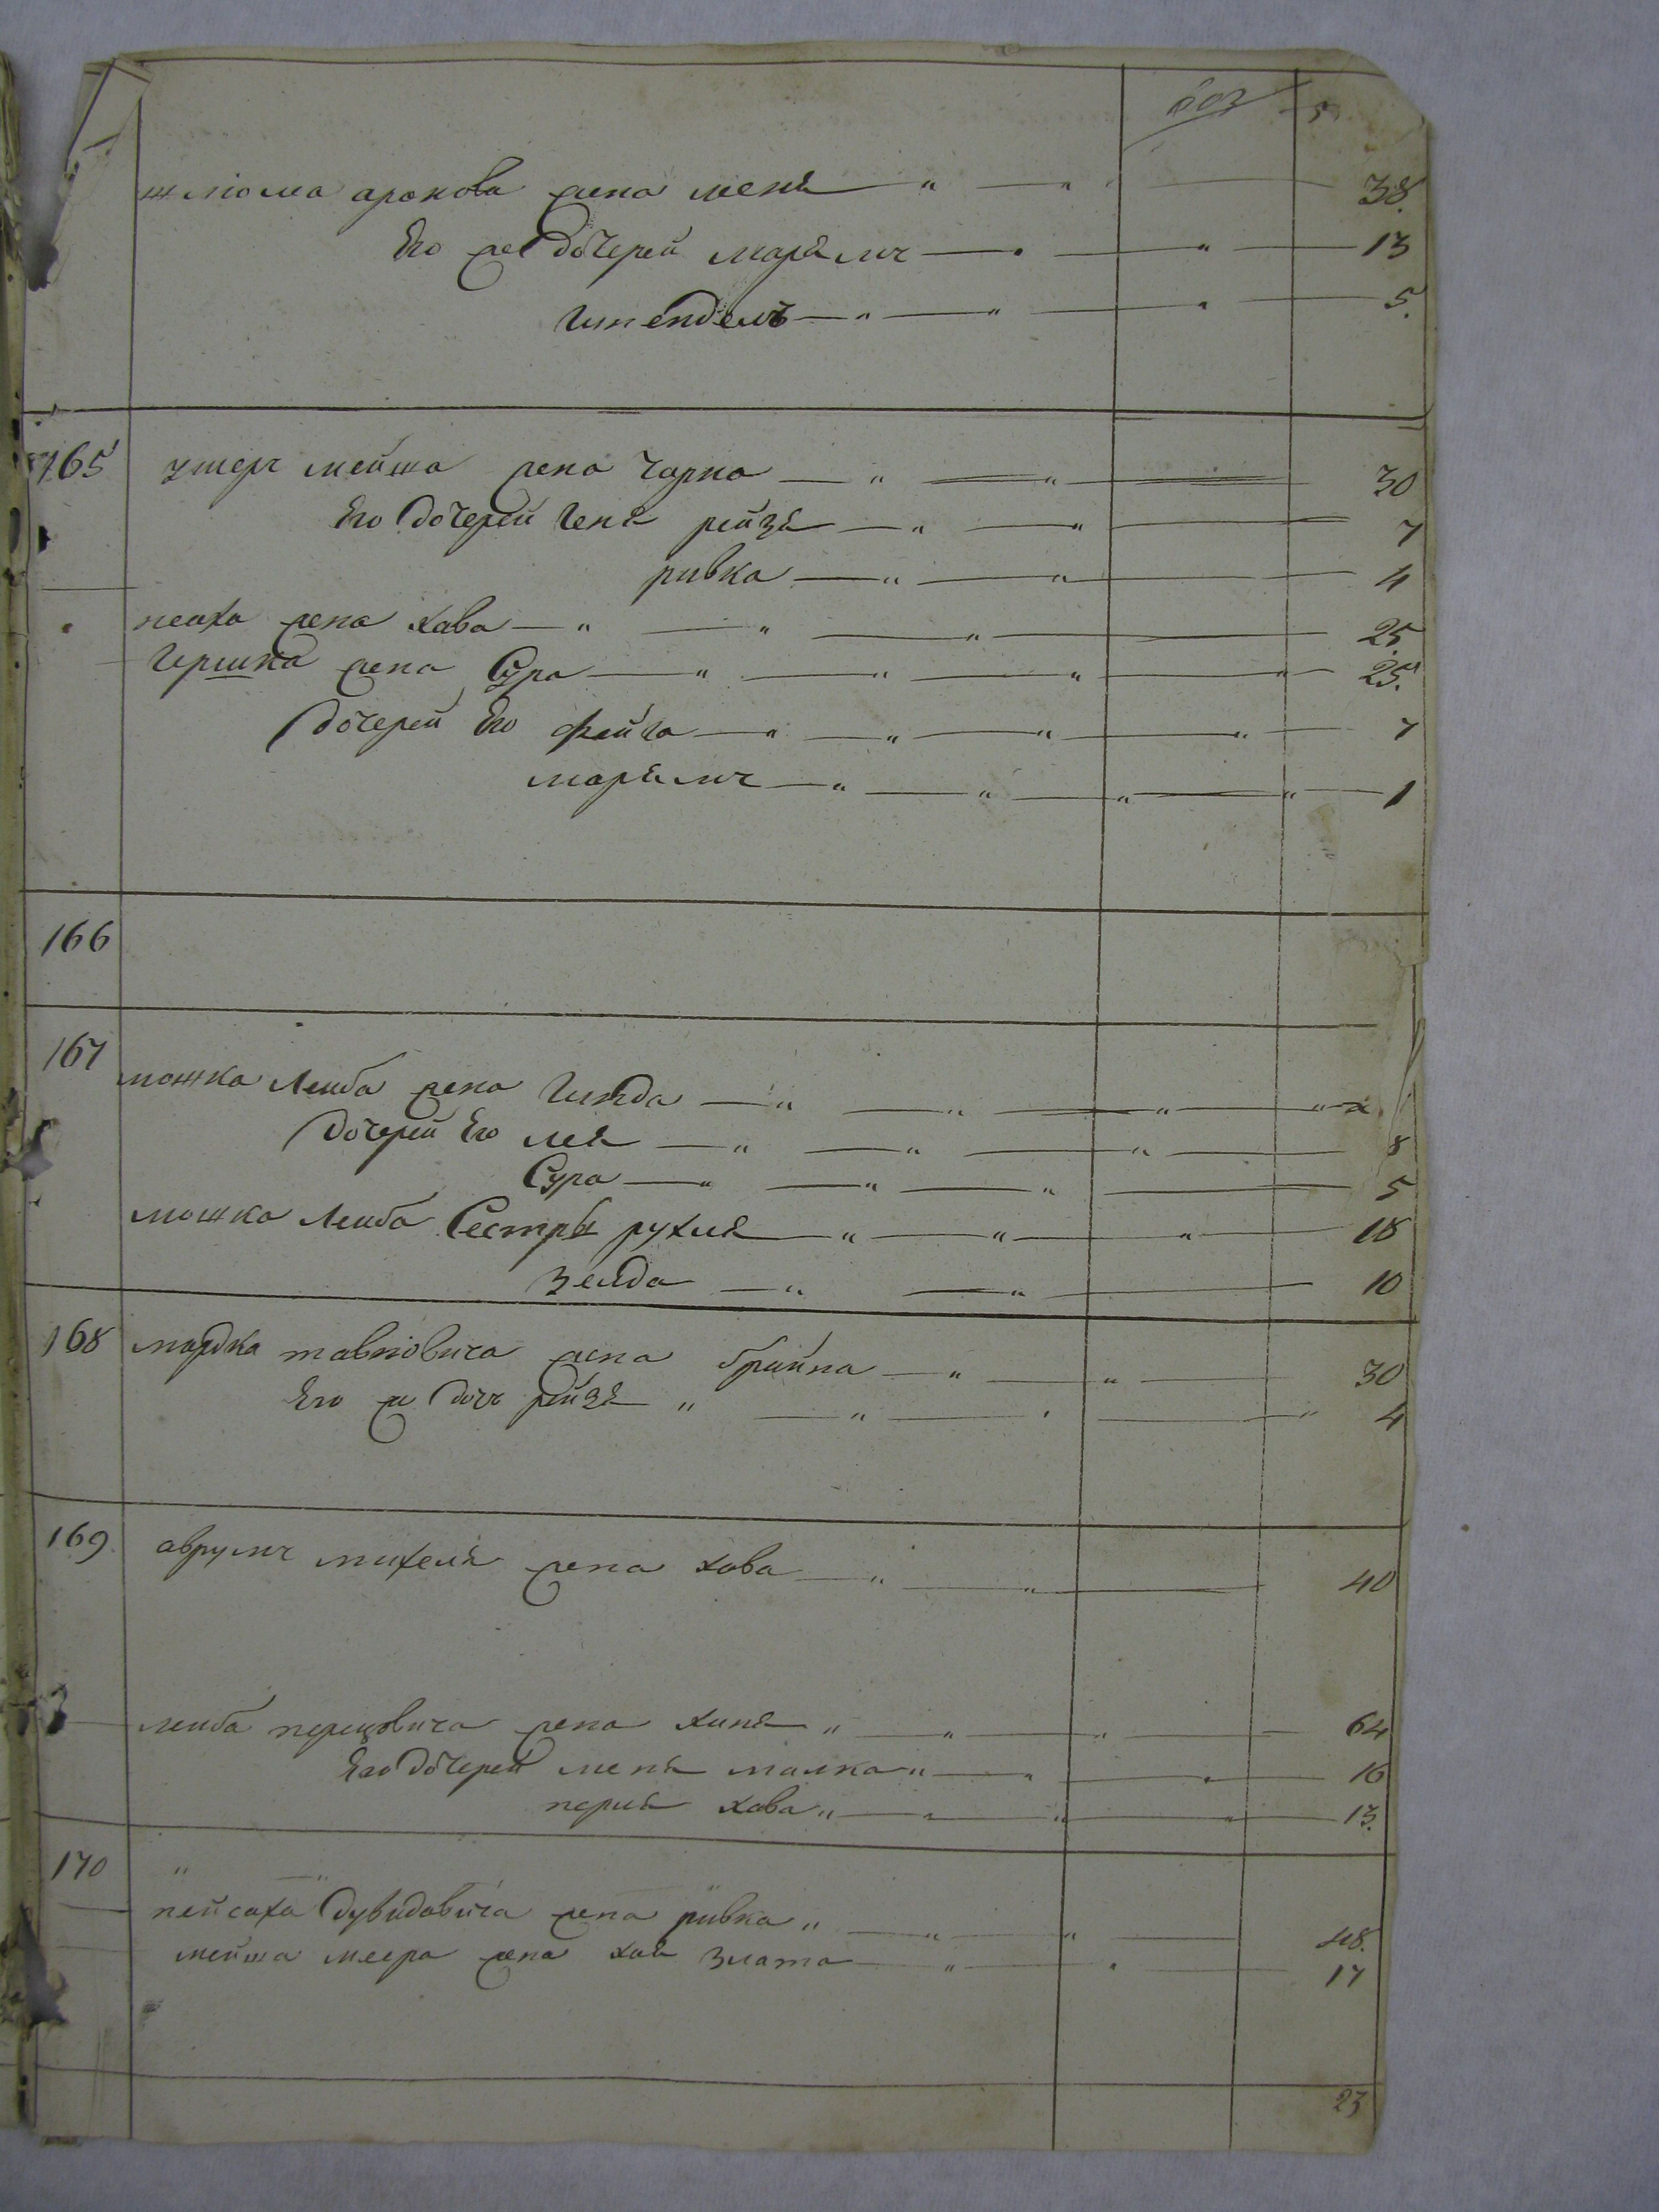 603
шліома аронова жена меня 38.
Его же дочерей марямъ 13
5.
165 ушеръ мейша жена Чарна 30
Его дочерей Геня рейзя 7
ривка 4
жена хава 25.
Гершка жена Сура 25.
дочерей Его фейга 7
марямъ 1
166
167 мошка Лейба жена
дочерей Его лея 8
Сура 5
мошка Лейба Сестры рухля 18
зелда 10
168 мордка жена брайна 30
Его же дочь рейзя 4
169 аврумъ михеля жена хава 40
лейба перецовича жена хиня 64
Его дочерей меня малка 16
перля хава 13.
170
пейсаха дувидовича жена ривка 48.
мейша меера жена хая злата 17
23